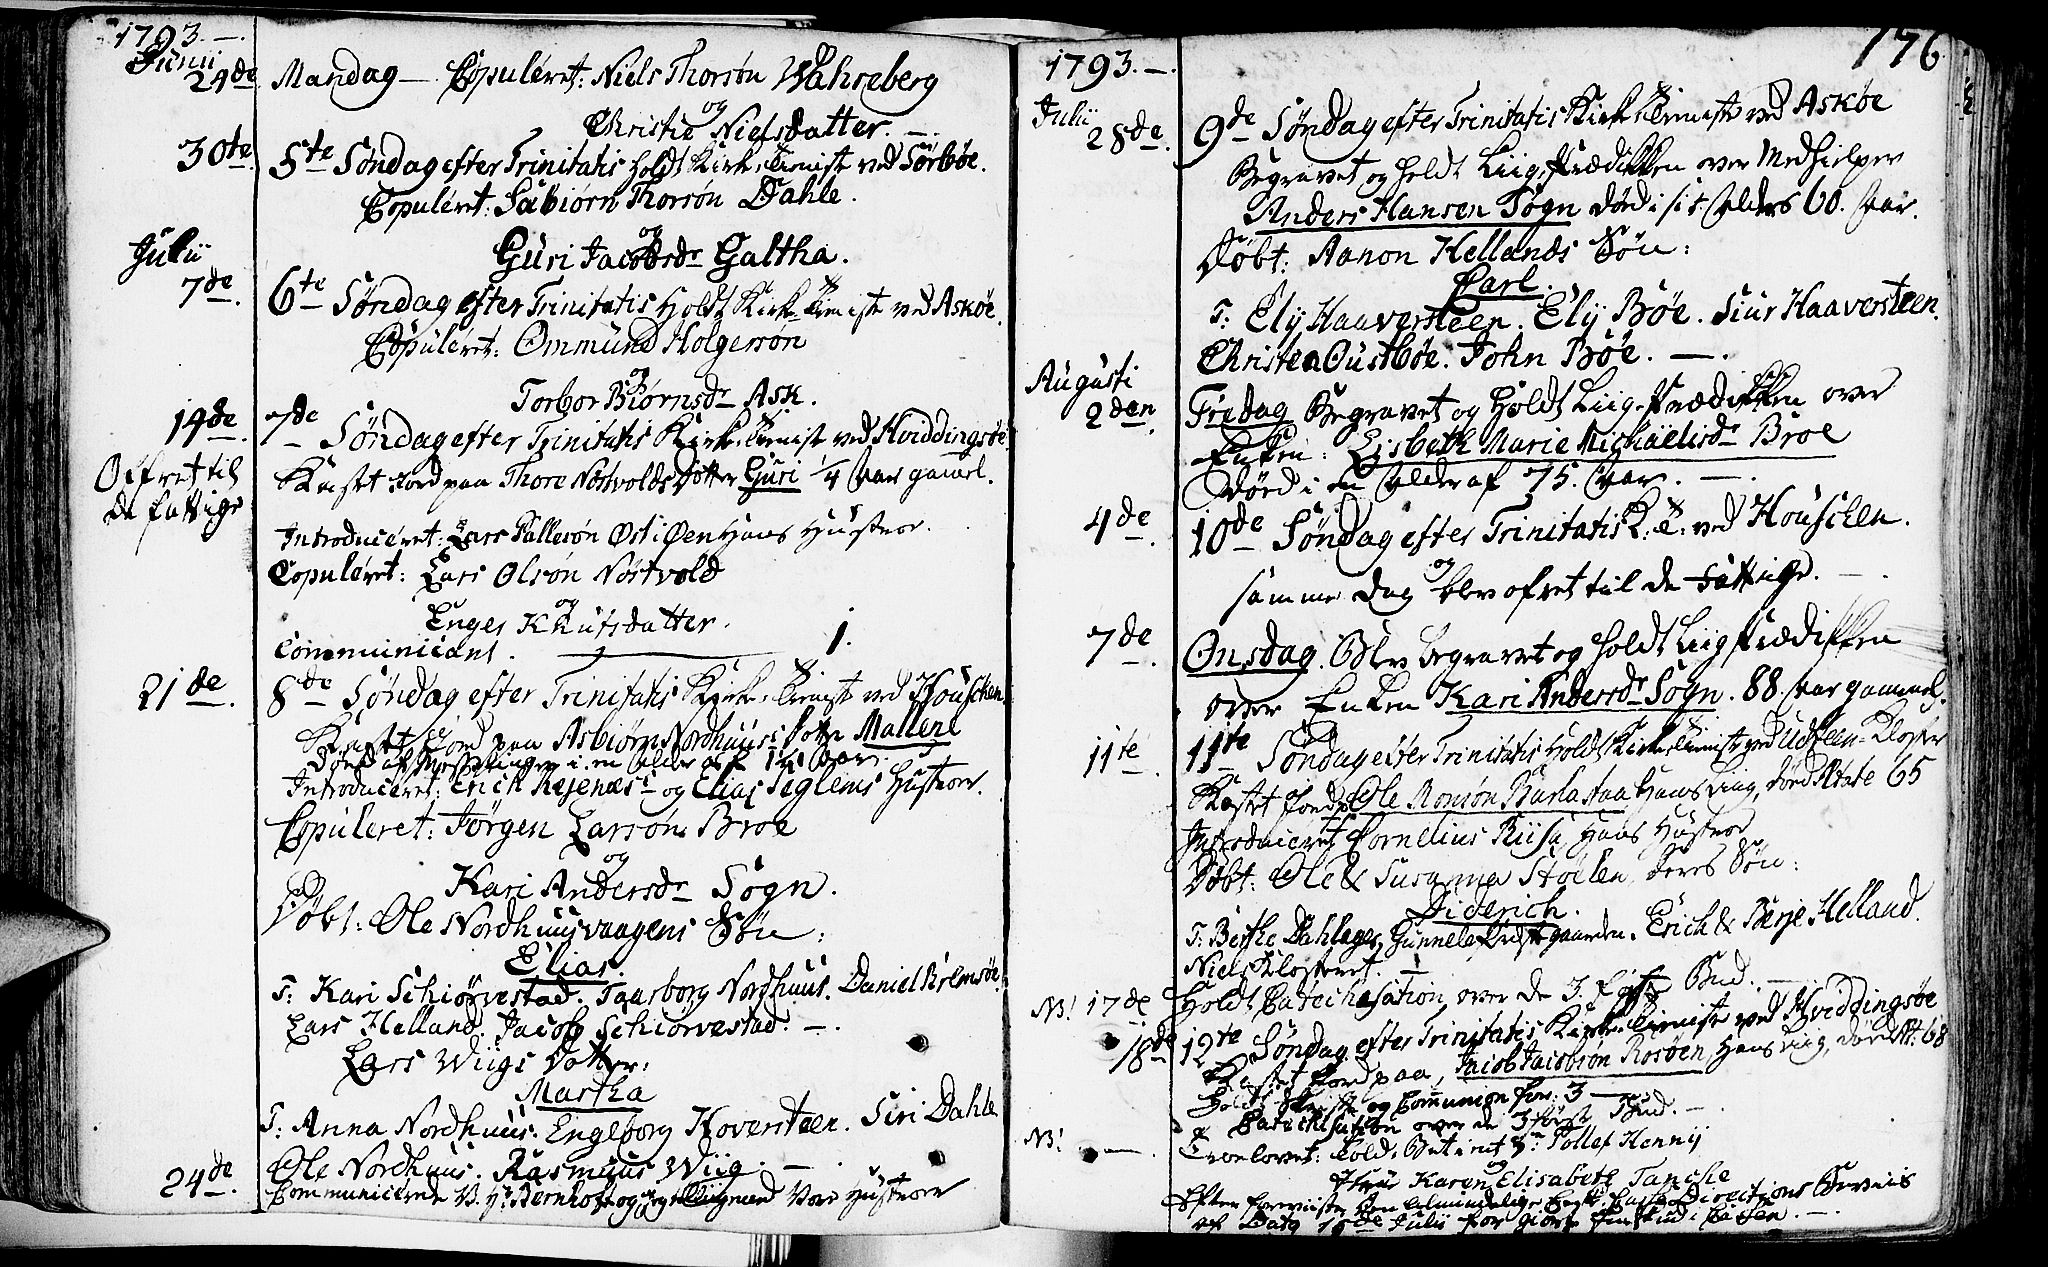 1793. —.
Junii
24de Mandag — Copuleret: Niels Thorsøn Wahreberg
og
Christie Nielsdatter. —.
30te 5te Søndag efter Trinitatis holdt Kirke-Tieniste ved Sørbøe.
Copuleret: Sabiørn Thorsøn Dahle.
og
Guri Jacobsdr Galtha.
Julii
7de. 6te Søndag efter Trinitatis Holdt Kirke-Tieniste ved Askøe.
Copuleret: Ommund Holgersøn
og
Torbor Biørnsdr Ask.
14de. 7de Søndag efter Trinitatis Kirke-Tieniste ved Hviddingsøe
Ofret til
de fattige
Kastet Jord paa Thore Nøstvolds Dotter Guri 1/4 Aar gamel.
Introduceret: Lars Pallesøn Øst i Øen Hans Hustroe.
Copuleret: Lars Olsøn Nøstvold
og
Enges Knutsdatter.
Communicant. — 1.
21de. 8de Søndag efter Trinitatis Kirke-Tieniste ved Houschen
Kastet Jord paa Asbiørn Nordhuus's Dotter Mallene
Død af Meslinger i en Alder af 14 Aar.
Introduceret: Erich Reienæs's og Elias Teglems Hustroer.
Copuleret: Jørgen Larsøn Broe
og
Kari Andersdr Sogn.
Døbt: Ole Nordhuusvaagens Søn:
Elias.
T: Kari Schiørvestad. Taarborg Nordhuus. Daniel Bremsøe.
Lars Helland. Jacob Schiørvestad. —.
Lars Wiigs Dotter:
Martha
T: Anna Nordhuus. Engeborg Hoversteen. Siri Dahle
Ole Nordhuus. Rasmuus Wiig. —.
24de. Communicerede V. Hr Bernhoft og jeg tilligemed Vore Hustroer
176
1793. —.
Julii
28de. 9de Søndag efter Trinitatis Kirke-Tieniste ved Askøe
Begravet og holdt Liig-Prædikken over Medhielper
Anders Hansen Sogn død i sit Alders 60. Aar.
Døbt: Aanon Hellands Søn:
Carl.
T: Elij Haaversteen. Elij Bøe. Siur Haaversteen.
Christen Oustbøe. John Bøe. —.
Augusti
2den. Fredag Begravet og Holdt Liig-Prædikken over
Enken: Lisbeth Marie Michaelisdr Broe
Død i en Alder af 75. Aar. —.
4de. 10de Søndag efter Trinitatis K: T: ved Houschen.
og
samme Dag blev ofret til de Fattige. —.
7de. Onsdag. Blev begravet og holdt Liig Prædikken
over Enken Kari Andersdr Sogn. 88. Aar gammel.
11te. 11te Søndag efter Trinitatis Holdt Kirke-Tieniste ved Udsteen-Closter
Kastet Jord paa Ole Monsøn Barlastaa Hans Liig, død Ætate 65
Introduceret Cornelius Riisa, Hans Hustroe
Døbt: Ole & Susanna Stølen, deres Søn:
Diderich.
T: Berthe Dahlager, Gunnele gaarden. Erich & Berje Helland.
Niels Closteret. —
NB! 17de Holdt Catechisation, over de 3. første Bud. —
18de 12te Søndag efter Trinitatis Kirke-Tieniste ved Hviddingsøe
Kastet Jord paa, Jacob Jacobsøn Rosøen, Hans Liig, død Æt: 68
Holdt Skrifte og Communion for: 3 —
Catechisation over de 3 første Bud. —
NB! —. Troelovet: Told-Betient Sr Tollef Hennij
og
Jfru Karen Elisabeth Tanche
Efter foreviiste den almindelige Directions Beviis
af Dato 19de Julii for giorte Indskud i Cassen. —.